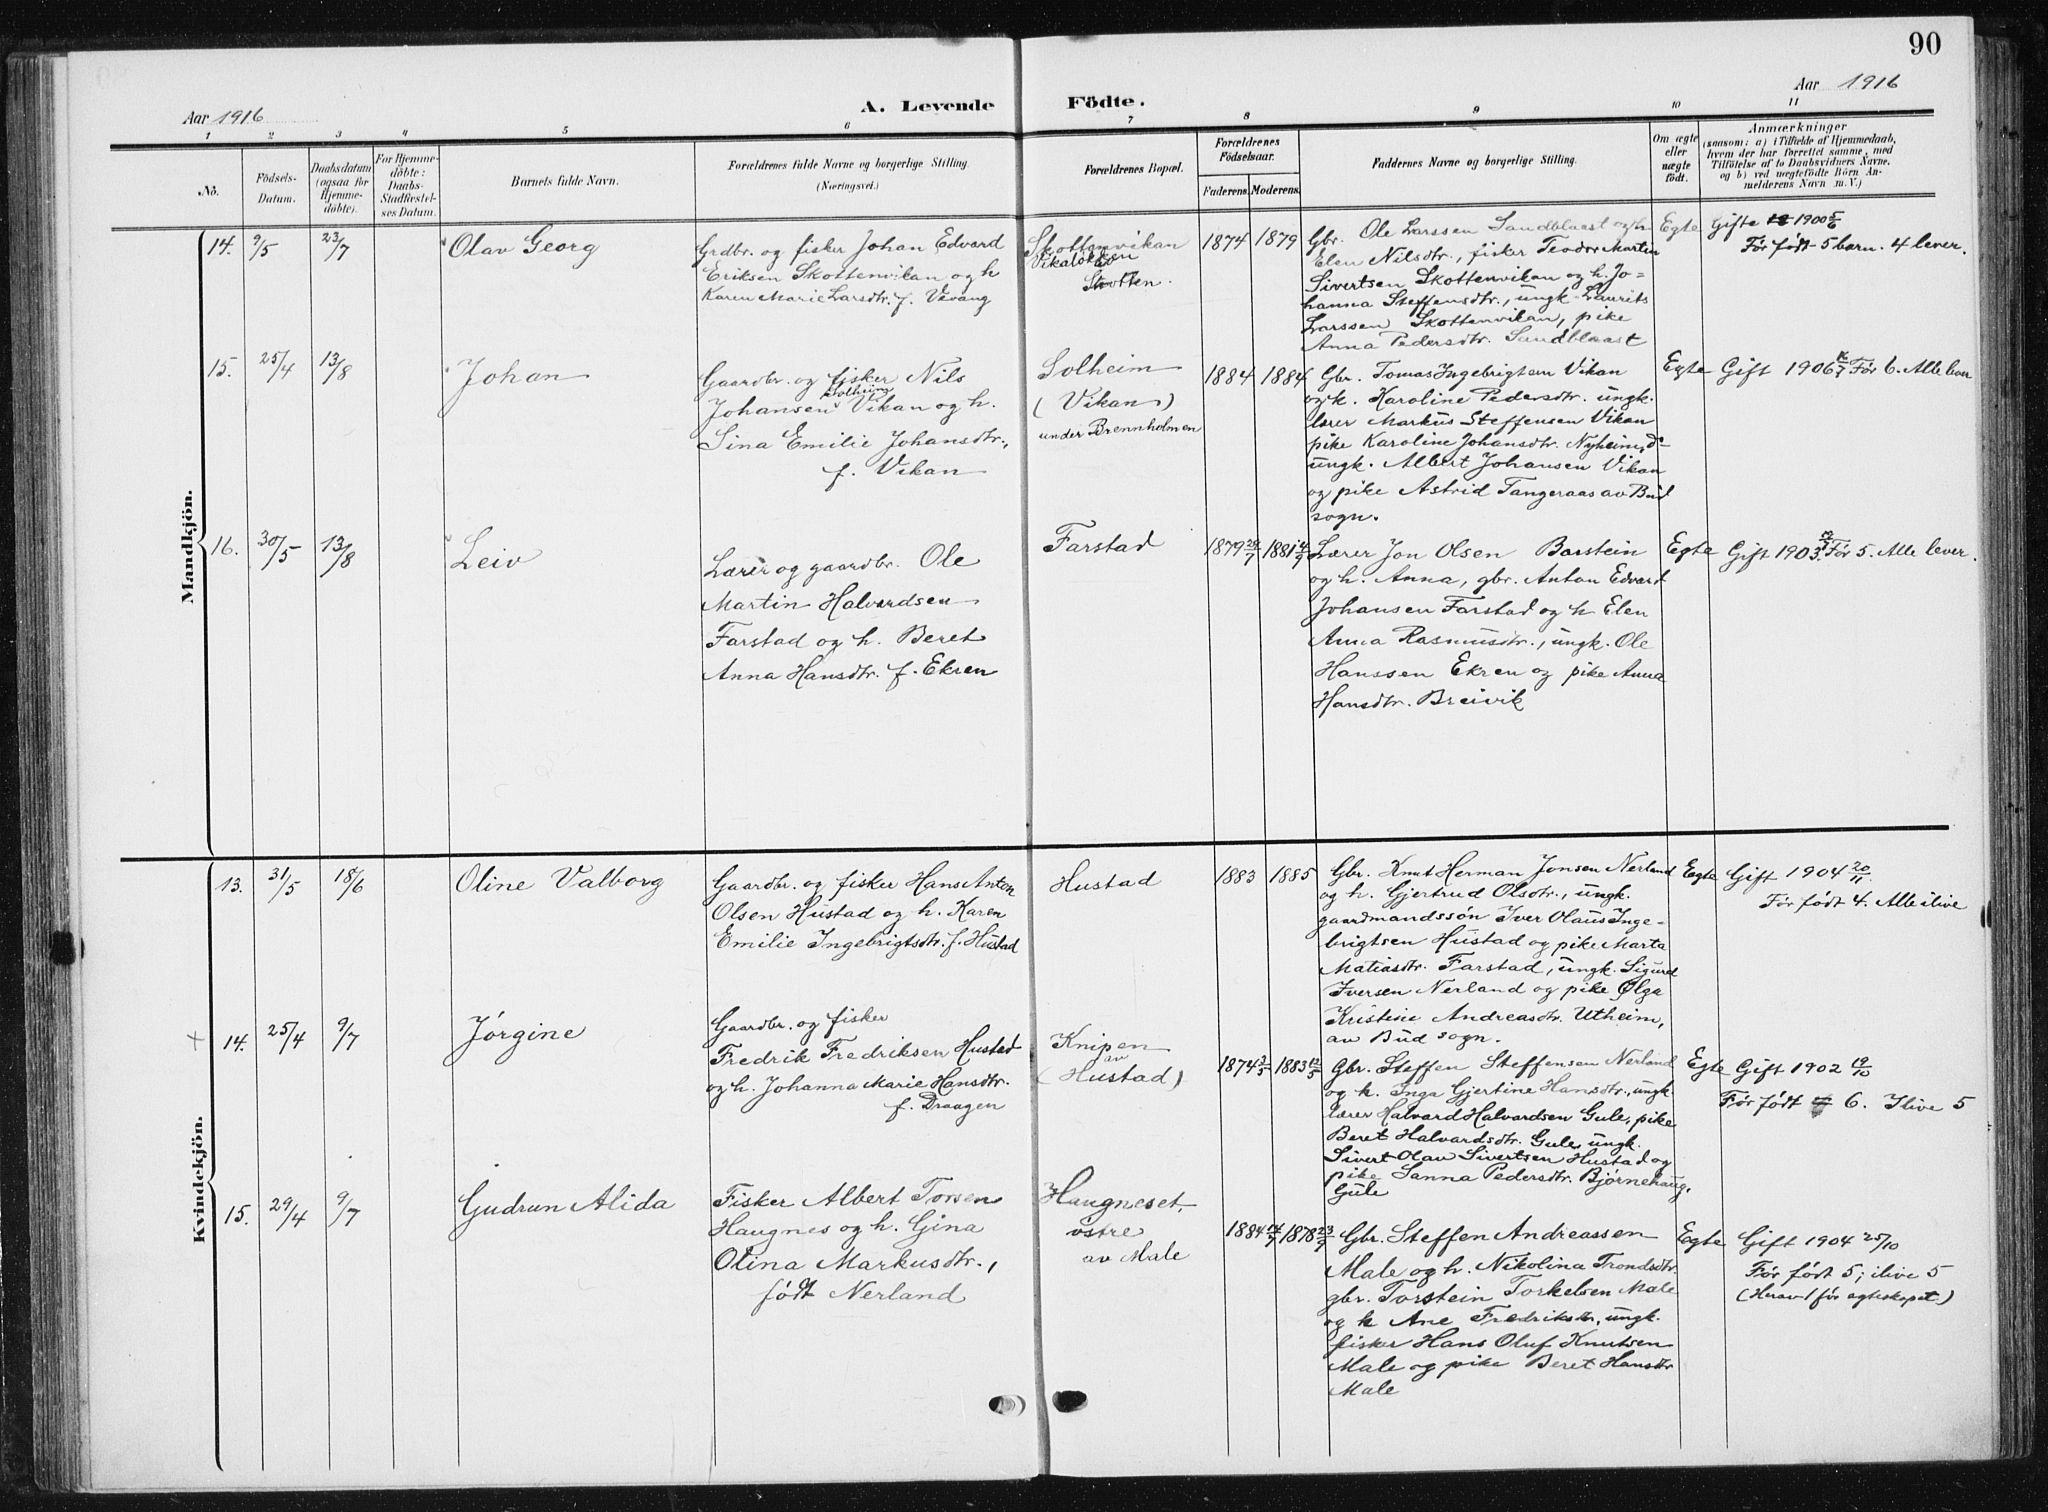 90
Aar 1916
A. Levende Födte.
Aar 1916
1 2 3 4 5 6 7 8 9 10 11
Nö.
Födsels-
Datum.
Daabsdatum
(ogsaa for
Hjemme-
döbte).
For Hjemme-
döbte:
Daabs-
Stadfæstel-
ses Datum.
Barnets fulde Navn.
Forældrenes fulde Navne og borgerlige Stilling.
(Næringsvei.)
Forældrenes Bopæl.
Forældrenes
Födselsaar.
Faderens. Moderens.
Faddernes Navne og borgerlige Stilling.
Om ægte
eller
uægte
födt.
Anmærkninger
(saasom: a) i Tilfælde af Hjemmedaab,
hvem der har forrettet samme, med
Tilföielse af to Daabsvidners Navne,
og b) ved uægtefödte Börn An-
melderens Navn m. V.)
Mandkjön.
14. 9/5 23/7 Olav Georg
Grdbr. og fisker Johan Edvard
Eriksen Skottenvikan og h
Karen Marie Larsdtr. f. Vevang
Skottenvikan
Vikaløkken
Skotten.
1874 1879
Gbr. Ole Larssen Sandblaast og h
Elen Nilsdtr., fisker Teodor Martin
Sivertsen Skottenvikan og h. Jo-
hanna Steffensdtr., ungk. Laurits
Larssen Skottenvikan, pike
Anna Pedersdtr. Sandblaast
Egte Gifte 1900 5/6
Før født 5 barn. 4 lever.
15. 25/4 13/8 Johan
Gaardbr. og fisker Nils
Solheim
Johansen Vikan og h.
Sina Emilie Johansdtr.,
f. Vikan
Solheim
(Vikan)
under Brennholmen
1884 1884
Gbr. Tomas Ingebrigtsen Vikan
og h. Karoline Pedersdtr. ungk.
lærer Markus Steffensen Vikan
pike Karoline Johansdtr. Nyheim,
ungk. Albert Johansen Vikan
og pike Astrid Tangeraas av Bud
sogn.
Egte Gift 1906 Før 6. Alle lever
16. 30/5 13/8 Leiv
Lærer og gaardbr. Ole
Martin Halvardsen
Farstad og h. Beret
Anna Hansdtr. f. Ekren
Farstad
1879 29/7 1881 4/9
Lærer Jon Olsen Barstein
og h. Anna, gbr. Anton Edvard
Johansen Farstad og h Elen
Anna Rasmusdtr., ungk. Ole
Hanssen Ekren og pike Anna
Hansdtr. Breivik
Egte Gift 1903 Før 5. Alle lever.
Kvindekjön.
13. 31/5 18/6 Oline Valborg
Gaardbr. og fisker Hans Anton
Olsen Hustad og h. Karen
Emilie Ingebrigtsdtr. f. Hustad
Hustad
1883 1885
Gbr. Knut Herman Jonsen Nerland
og h. Gjertrud Olsdtr., ungk.
gaardmandssøn Iver Olaus Inge-
brigtsen Hustad og pike Marta
Matiasdtr. Farstad, ungk. Sigurd
Iversen Nerland og pike Olga
Kristine Andreasdtr. Utheim,
av Bud sogn.
Egte Gift 1904 20/11
Før født 4. Alle ilive
+ 14. 25/4 9/7 Jørgine
Gaardbr. og fisker
Fredrik Fredriksen Hustad
og h. Johanna Marie Hansdtr.
f. Draagen
Knipen
av
(Hustad)
1874 3/5 1883 12/5
Gbr. Steffen Steffensen Nerland
og h. Inga Gjertine Hansdtr., ungk
lærer Halvard Halvardsen Gule, pike
Beret Halvardsdtr. Gule, ungk.
Sivert Olau Sivertsen Hustad og
pike Sanna Pedersdtr. Bjørnehaug,
Gule
Egte Gift 1902 19/10
Før født 6. Ilive 5
15. 29/4 9/7 Gudrun Alida
Fisker Albert Torsen
Haugnes og h. Gina
Olina Markusdtr.,
født Nerland
Haugneset,
østre
av Male
1884 14/7 1878 23/9
Gbr. Steffen Andreassen
Male og h. Nikolina Trondsdtr
gbr. Torstein Torkelsen Male
og h Ane Fredriksdtr, ungk.
fisker Hans Oluf Knutsen
Male og pike Beret Hansdtr
Male
Egte Gift 1904 25/10
Før født 5; ilive 5
(Herav 1 før egteskapet)